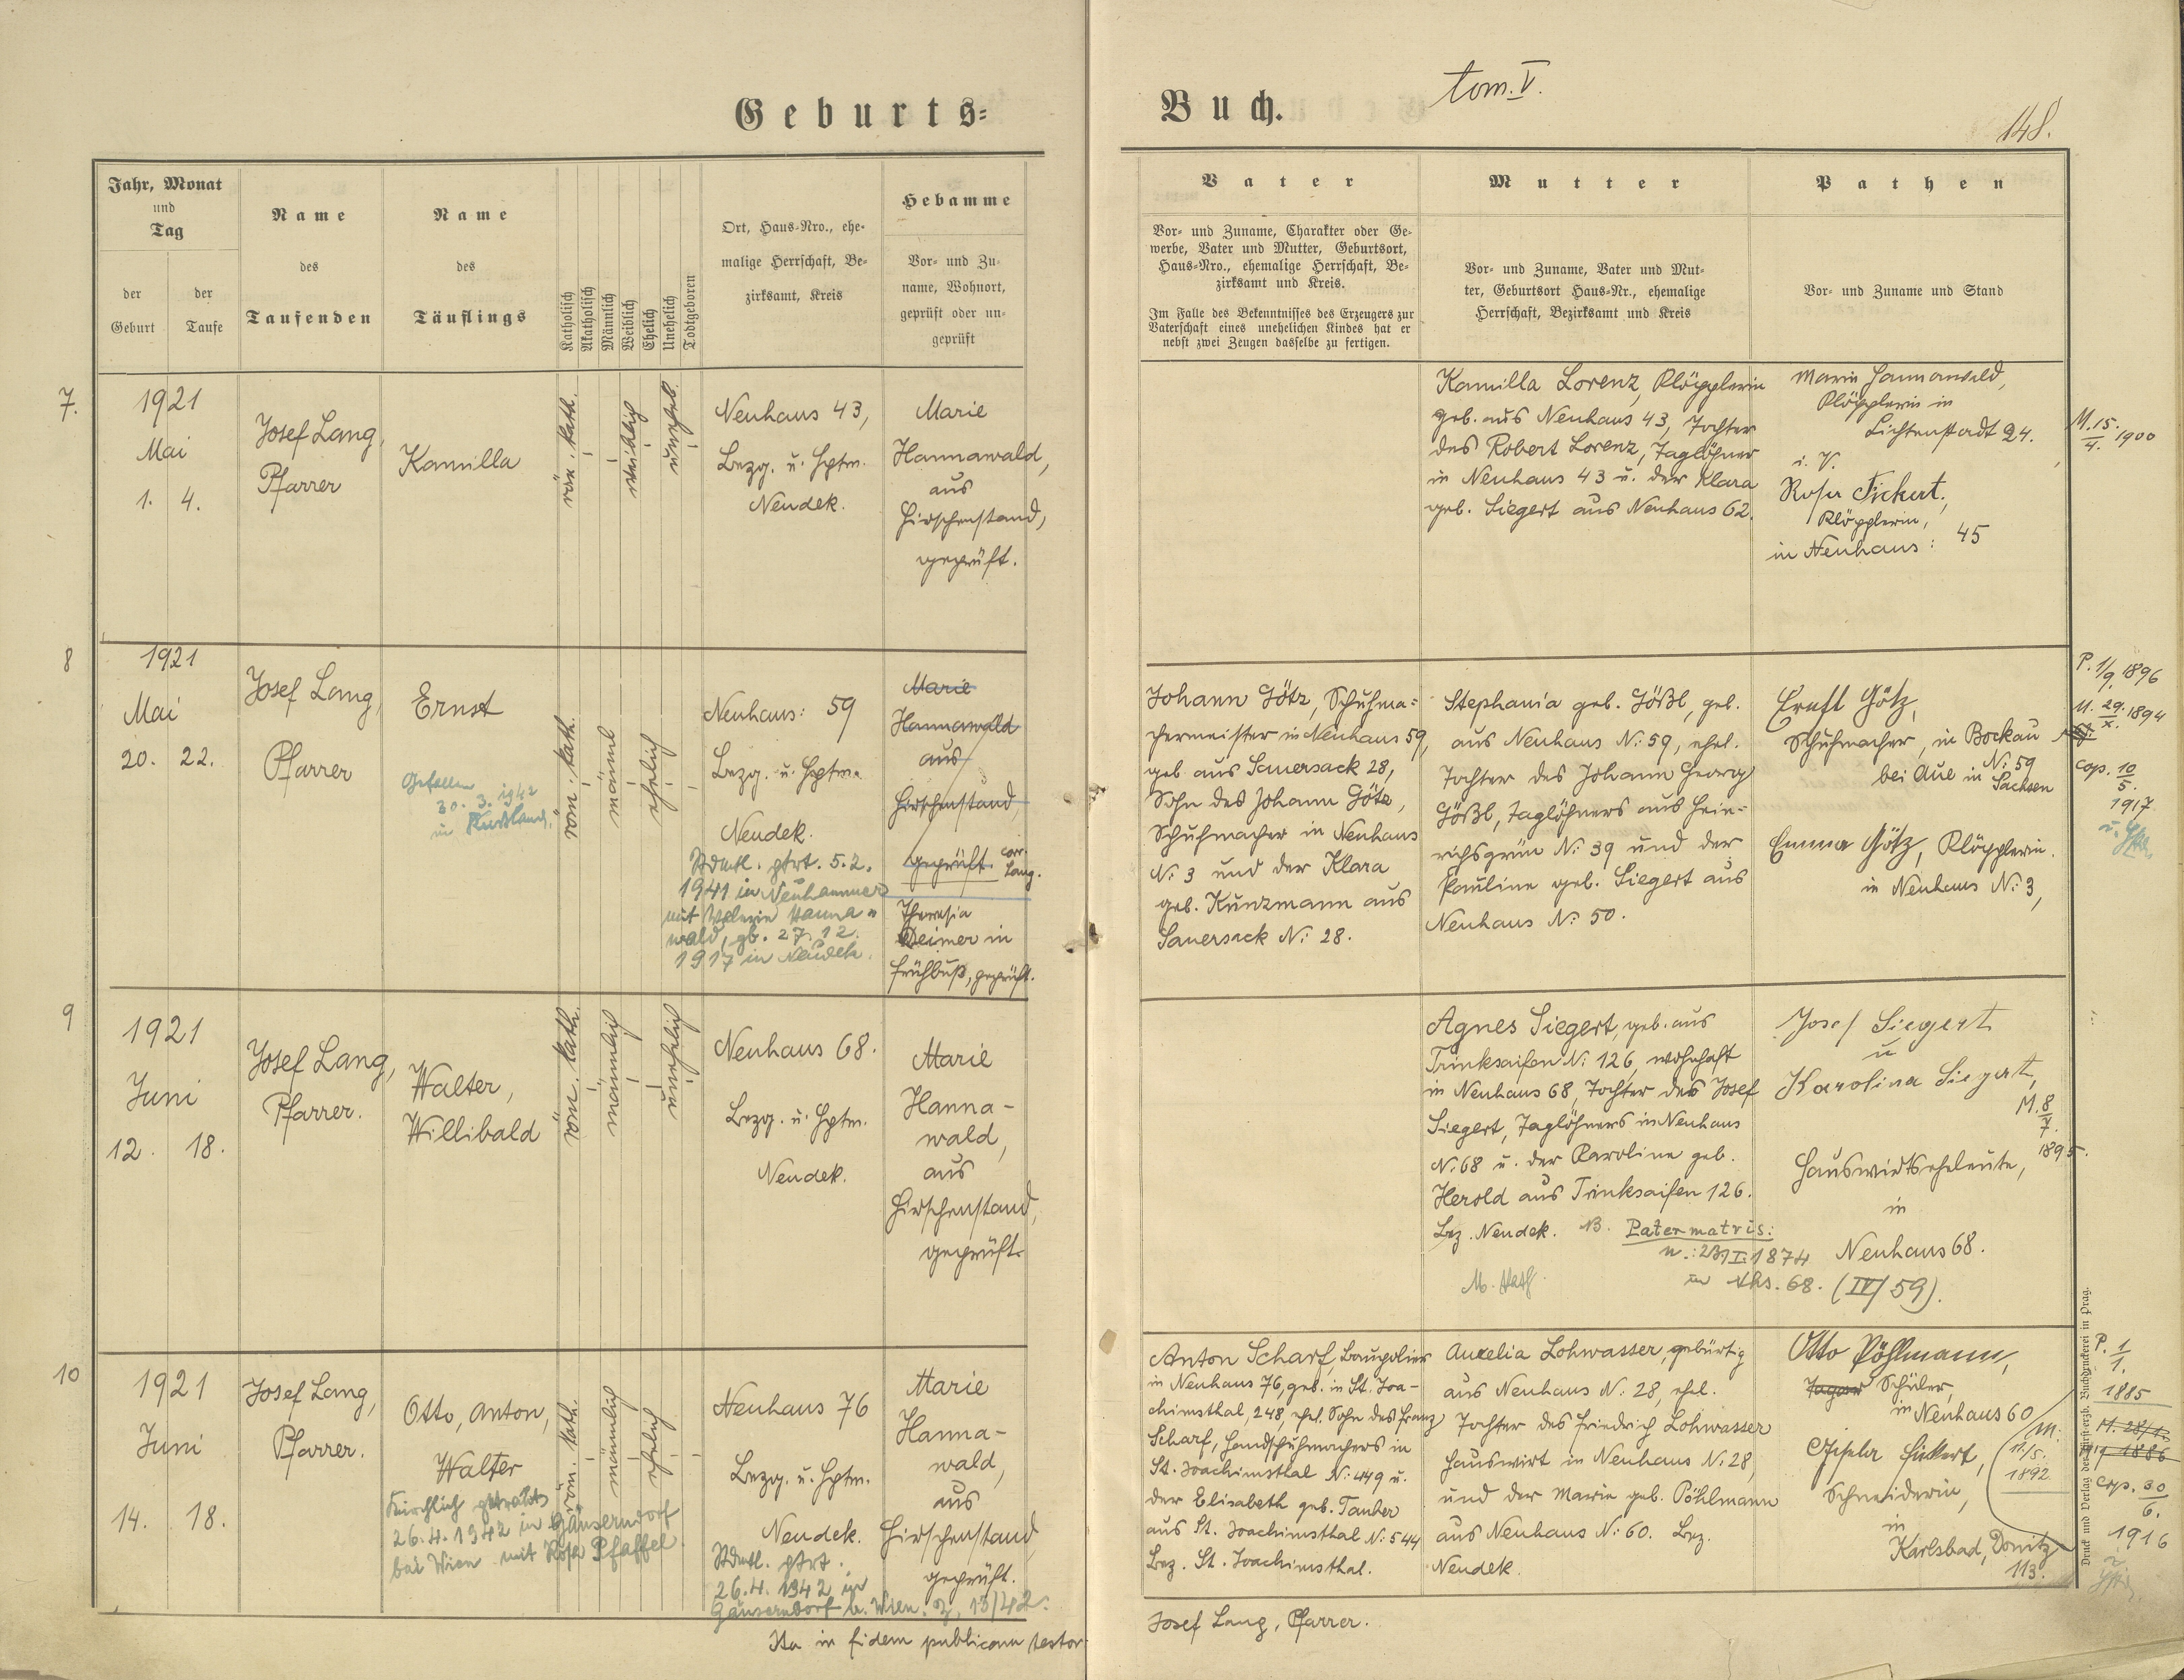 Geburts-
Buch.
tom. V.
148.
Jahr, Monat
und
Tag
der
Geburt
der
Taufe
Name
des
Taufenden
Name
des
Täuflings
Katholisch
Akatholisch
Männlich
Weiblich
Ehelich
Unehelich
Todtgeboren
Ort, Haus-Nro., ehe-
malige Herrschaft, Be-
zirksamt, Kreis
Hebamme
Vor- und Zu-
name, Wohnort,
geprüft oder un-
geprüft
Vater
Vor- und Zuname, Charakter oder Ge-
werbe, Vater und Mutter, Geburtsort,
Haus-Nro., ehemalige Herrschaft, Be-
zirksamt und Kreis.
Im Falle des Bekenntnisses des Erzeugers zur
Vaterschaft eines unehelichen Kindes hat er
nebst zwei Zeugen dasselbe zu fertigen.
Mutter
Vor- und Zuname, Vater und Mut-
ter, Geburtsort Haus-Nr., ehemalige
Herrschaft, Bezirksamt und Kreis
Pathen
Vor- und Zuname und Stand
7.
1921
Mai
1. 4.
Josef Lang,
Pfarrer
Kamilla
röm. kath.
weiblich
unehel.
Neuhaus 43,
Bezg. u. Hptm.
Neudek.
Marie
Hannawald,
aus
Hirschenstand,
geprüft.
Kamilla Lorenz, Klöpplerin
geb. aus Neuhaus 43, Tochter
des Robert Lorenz, Taglöhner
in Neuhaus 43 u. der Klara
geb. Siegert aus Neuhaus 62.
Marie Hannawald,
Klöpplerin in
Lichtenstadt 24.
i. V.
Rosa Fickert,
Klöpplerin,
in Neuhaus: 45
M. 15.
4. 1900
8
1921
Mai
20. 22.
Josef Lang,
Pfarrer
Ernst
Gefallen
30. 3. 1942
in Rußland.
röm. kath.
männl
ehelich
Neuhaus: 59
Bezg. u. Hptm.
Neudek.
Stdmtl. gtrt. 5.2.
1941 in Neuhammer
mit Valerie Hanna-
wald, gb. 27.12.
1917 in Neudek.
Marie
Hannawald
aus
Hirschenstand,
geprüft. corr.
Lang.
Theresia
Deimer in
Frühbuß, geprüft.
Johann Götz, Schuhma-
chermeister in Neuhaus 59,
geb. aus Sauersack 28,
Sohn des Johann Götz,
Schuhmacher in Neuhaus
N: 3 und der Klara
geb. Kunzmann aus
Sauersack N: 28.
Stephania geb. Gößl, geb.
aus Neuhaus N: 59, ehel.
Tochter des Johann Georg
Gößl, Taglöhners aus Hein-
richsgrün N: 39 und der
Pauline geb. Siegert aus
Neuhaus N: 50.
Ernst Götz,
Schuhmacher, in Bockau
N: 59
bei Aue in Sachsen
Emma Götz, Klöpplerin.
in Neuhaus N: 3,
P. 1/9. 1896
M. 29. 1894
X.
cop. 10
5.
1917
9
1921
Juni
12. 18.
Josef Lang,
Pfarrer.
Walter,
Willibald
röm. kath.
männlich
unehelich
Neuhaus 68.
Bezg. u. Hptm.
Neudek.
Marie
Hanna-
wald,
aus
Hirschenstand,
geprüft.
Agnes Siegert, geb. aus
Trinksaifen N: 126, wohnhaft
in Neuhaus 68, Tochter des Josef
Siegert, Taglöhners in Neuhaus
N: 68 u. der Karoline geb.
Herold aus Trinksaifen 126.
Bez. Neudek. NB. Pater matris:
n.: 23/I. 1874
in Nhs. 68. (IV/59).
Josef Siegert
u
Karolina Siegert,
M. 8
7.
1895.
Hauswirtseheleute,
in
Neuhaus 68.
10
1921
Juni
14. 18.
Josef Lang,
Pfarrer.
Otto, Anton,
Walter
Kirchlich getraut
26.4.1942 in Gänserndorf
bei Wien mit Rosa Pfaffel.
röm. kath.
männlich
ehelich
Neuhaus 76
Bezg. u. Hptm.
Neudek.
Stdmtl. gtrt.
26.4. 1942 in
Gänserndorf b. Wien. Z. 13/42.
Marie
Hanna-
wald,
aus
Hirschenstand,
geprüft.
Anton Scharf, Baupolier
in Neuhaus 76, geb. in St. Joa-
chimsthal, 248, ehel. Sohn des Franz
Scharf, Handschuhmachers in
St. Joachimsthal N: 449 u.
der Elisabeth geb. Tauber
aus St. Joachimsthal N: 544
Bez. St. Joachimsthal.
Aurelia Lohwasser, gebürtig
aus Neuhaus N: 28, ehel.
Tochter des Friedrich Lohwasser
Hauswirt in Neuhaus N: 28,
und der Marie geb. Pöhlmann
aus Neuhaus N: 60. Bez.
Neudek.
Otto Pöhlmann,
Schüler,
in Neuhaus 60
Gisela Fickert,
Schneiderin,
in
Karlsbad, Donitz
113.
M:
11./5.
1892
P. 1
1.
1885
M. 28/1.
1886
cop. 30
6.
1916
Druck und Verlag der fürsterzb. Buchdruckerei in Prag.
Ita in fidem publicam testor
Josef Lang, Pfarrer.